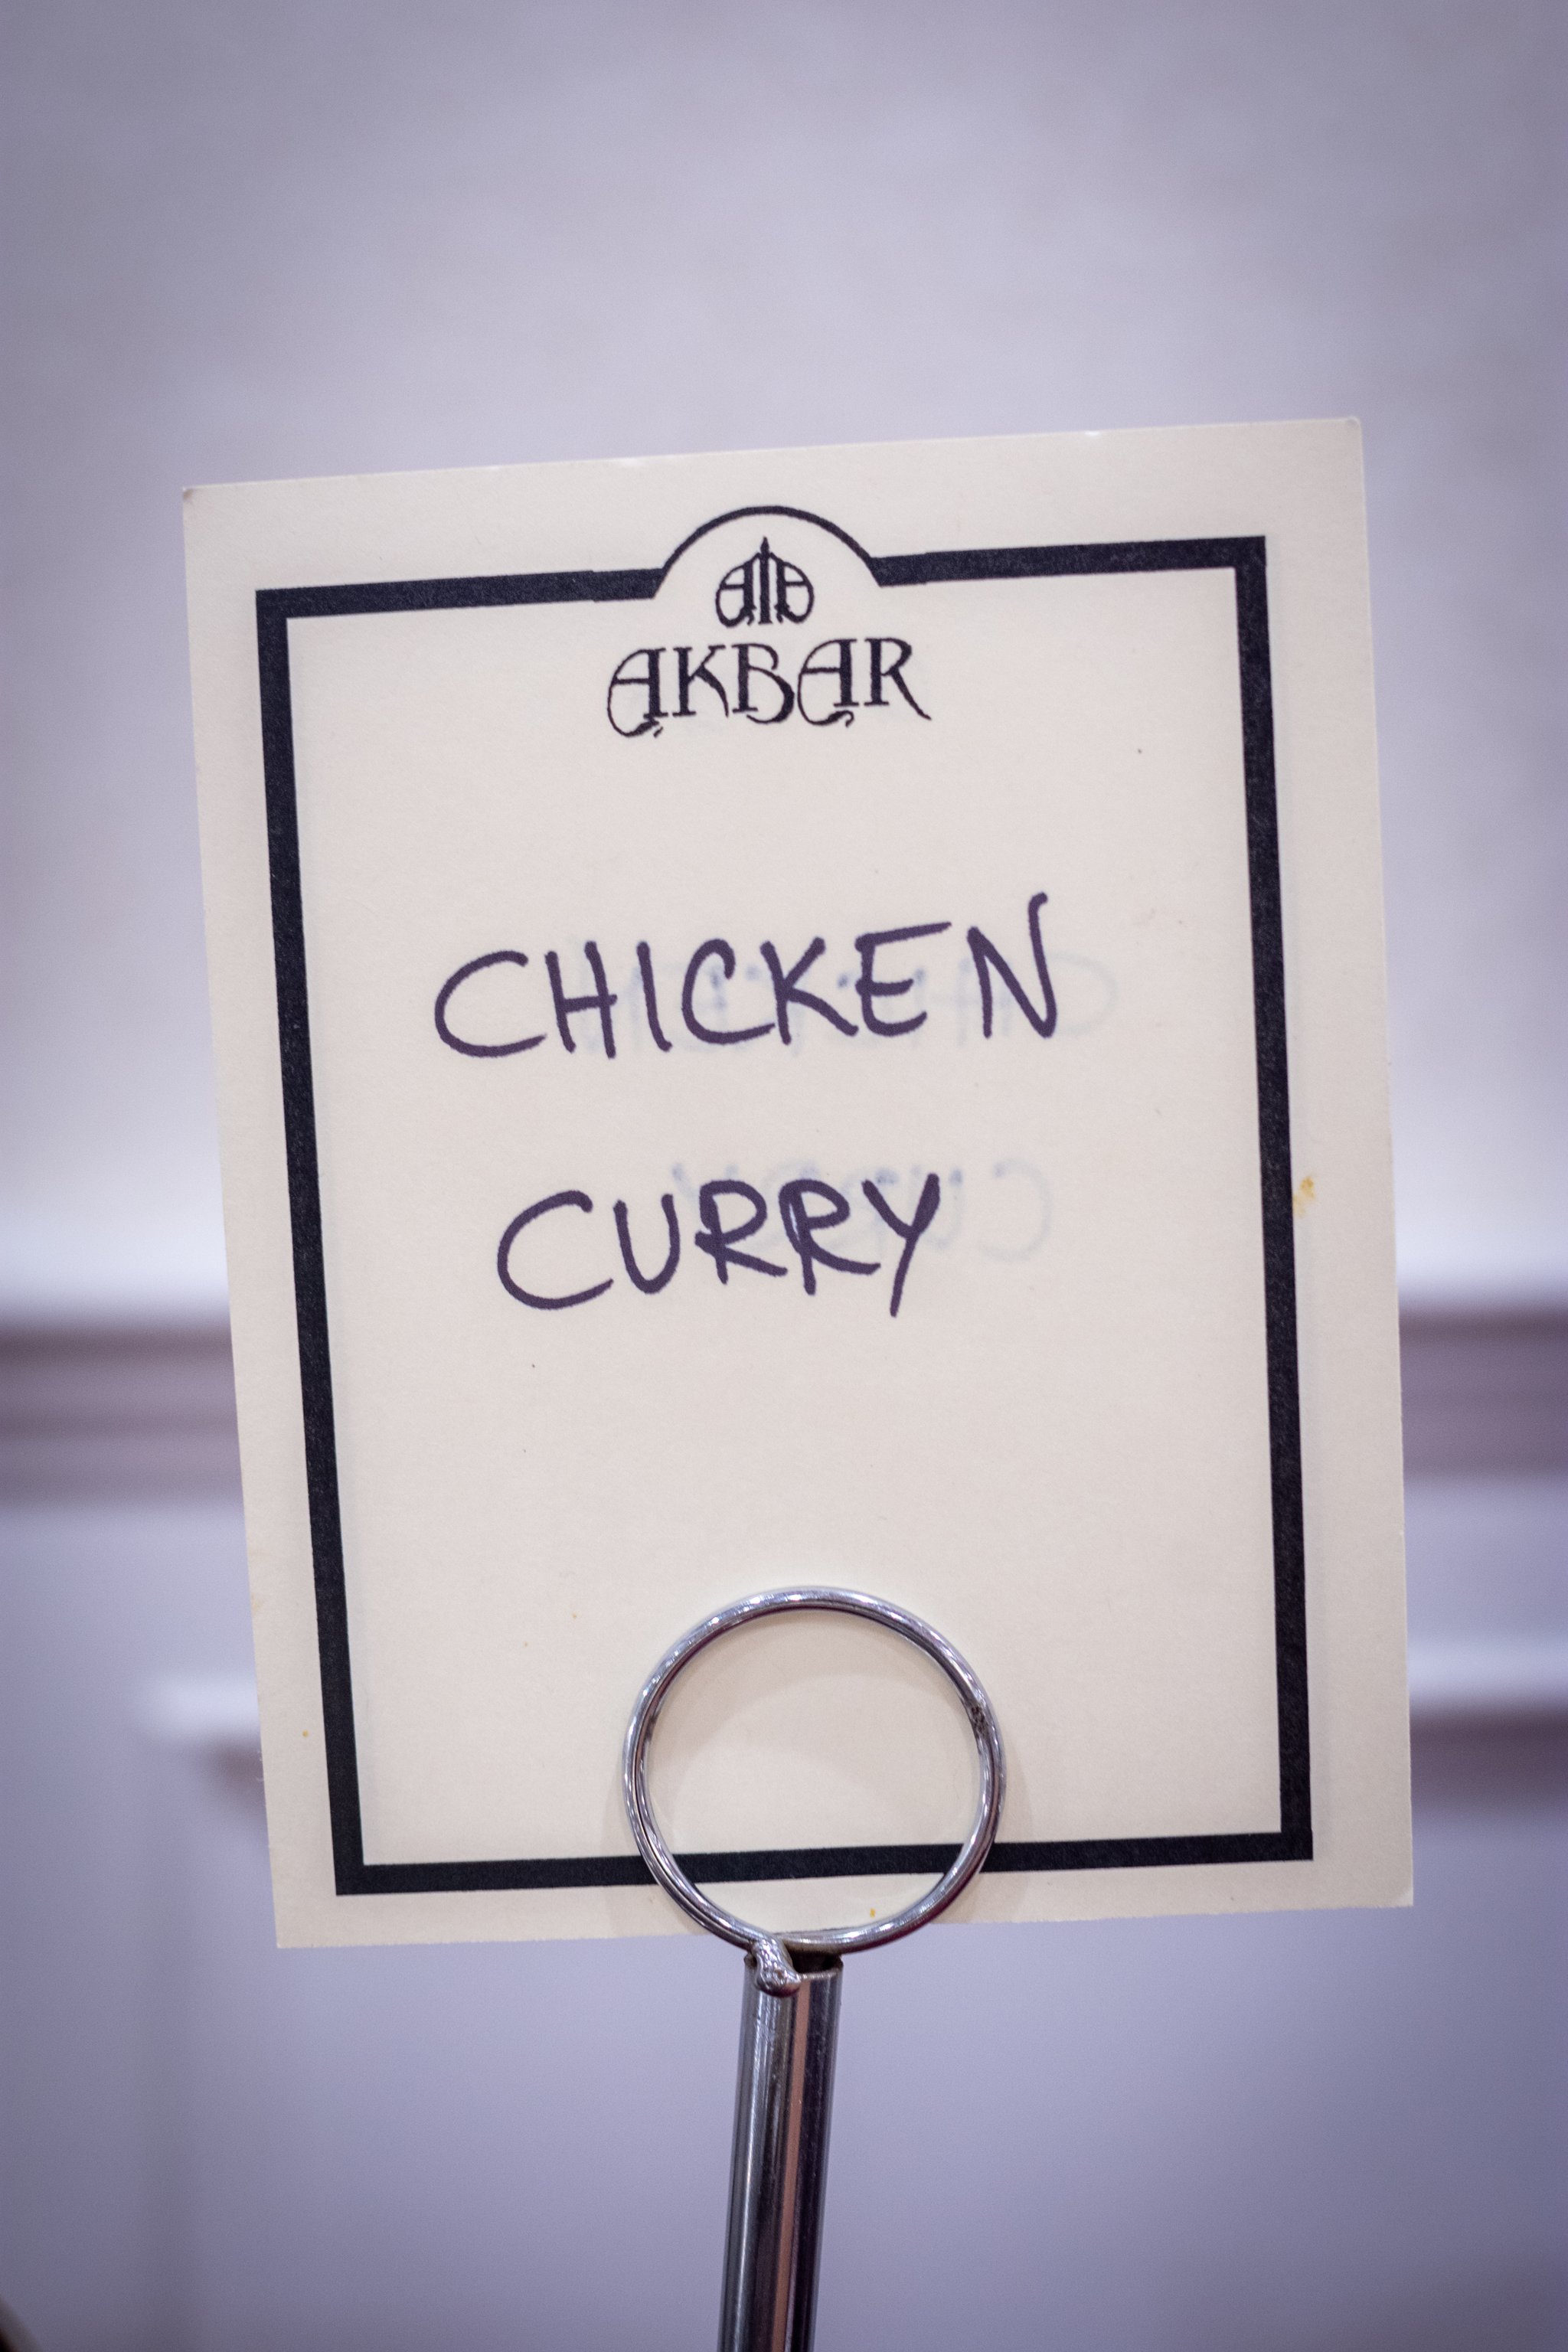 AKBAR
CHICKEN
CURRY